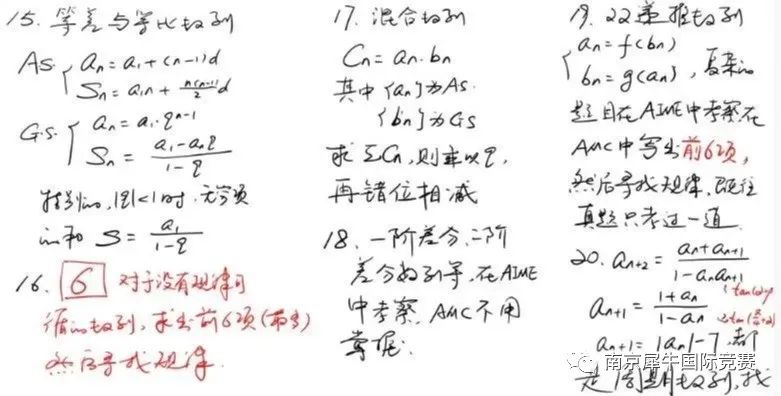 15. 等差与等比数列
A.S. { an = a1 + (n-1)d
Sn = a1n + n(n-1)/2 d
G.S. { an = a1·q^(n-1)
Sn = (a1 - anq)/(1-q)
特别的, |q|<1时, 无穷项
的和 S = a1/(1-q)
16. 6 对于没有规律可
循的数列, 求出前6项(最多)
然后寻找规律.
17. 混合数列
Cn = an·bn
其中{an}为A.S.
{bn}为G.S
求ΣCn, 则乘以q,
再错位相减
18. 一阶差分、二阶
差分数列等, 在AIME
中考察, AMC不用
掌握.
19. 双递推数列
{ an = f(bn)
bn = g(an) , 复杂的
题目在AIME中考察在
AMC中写出前6项,
然后寻找规律. 既往
真题只考过一道.
20. an+2 = (an+an+1)/(1-anan+1)
an+1 = (1+an)/(1-an)
an+1 = |an|-7, 都
是周期数列, 找
南京犀牛国际竞赛